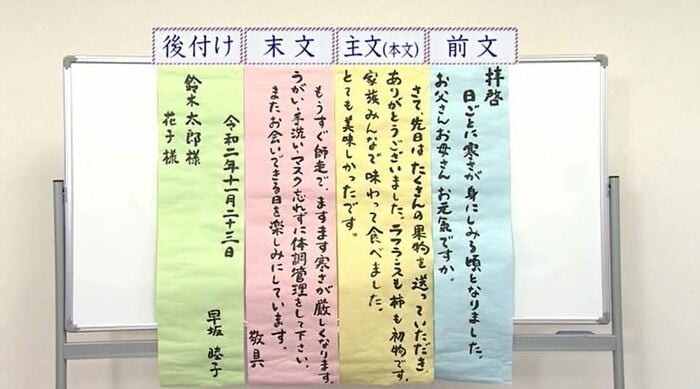 前文
拝啓
日ごとに寒さが身にしみる頃となりました。
お父さんお母さん お元気ですか。
主文(本文)
さて、先日はたくさんの果物を送っていただき
ありがとうございました。ラフランスも柿も初物です。
家族みんなで味わって食べました。
とても美味しかったです。
末文
もうすぐ師走で、ますます寒さが厳しくなります。
うがい、手洗い、マスク忘れずに体調管理をして下さい。
またお会いできる日を楽しみにしています。
敬具
後付け
令和二年十一月二十三日
早坂 睦子
鈴木太郎様
花子様